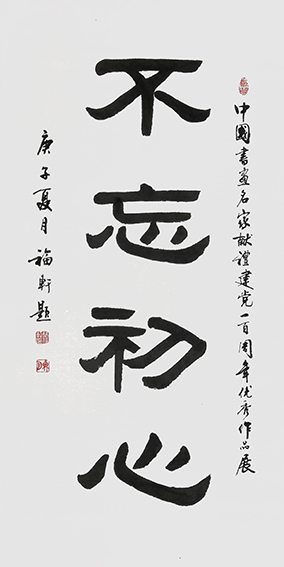 中國書畫名家献禮建党一百周年优秀作品展
不忘初心
庚子夏月福軒題